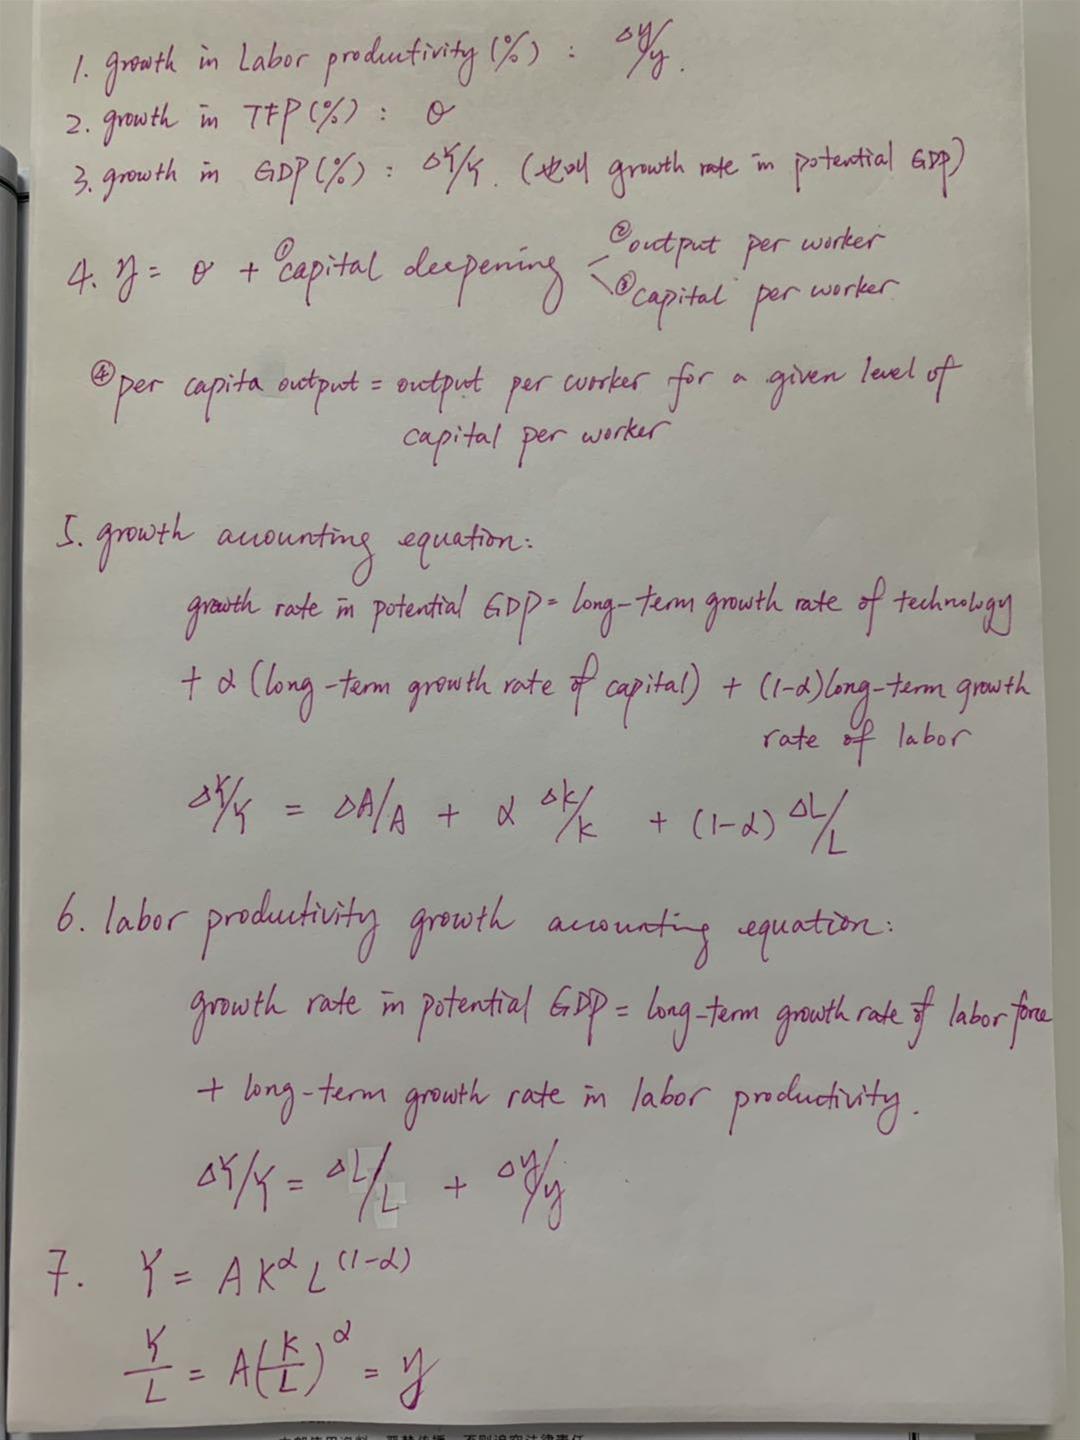 1. growth in Labor productivity (%) : Δy/y.
2. growth in TFP (%) : θ
3. growth in GDP (%) : ΔY/Y. (也叫 growth rate in potential GDP)
4. y = θ + ①capital deepening
②output per worker
③capital per worker
④per capita output = output per worker for a given level of
capital per worker
5. growth accounting equation:
growth rate in potential GDP = long-term growth rate of technology
+ α (long-term growth rate of capital) + (1-α) long-term growth
rate of labor
ΔY/Y = ΔA/A + α ΔK/K + (1-α) ΔL/L
6. labor productivity growth accounting equation:
growth rate in potential GDP = long-term growth rate of labor force
+ long-term growth rate in labor productivity.
ΔY/Y = ΔL/L + Δy/y
7. Y = A K^α L^(1-α)
Y/L = A(K/L)^α = y